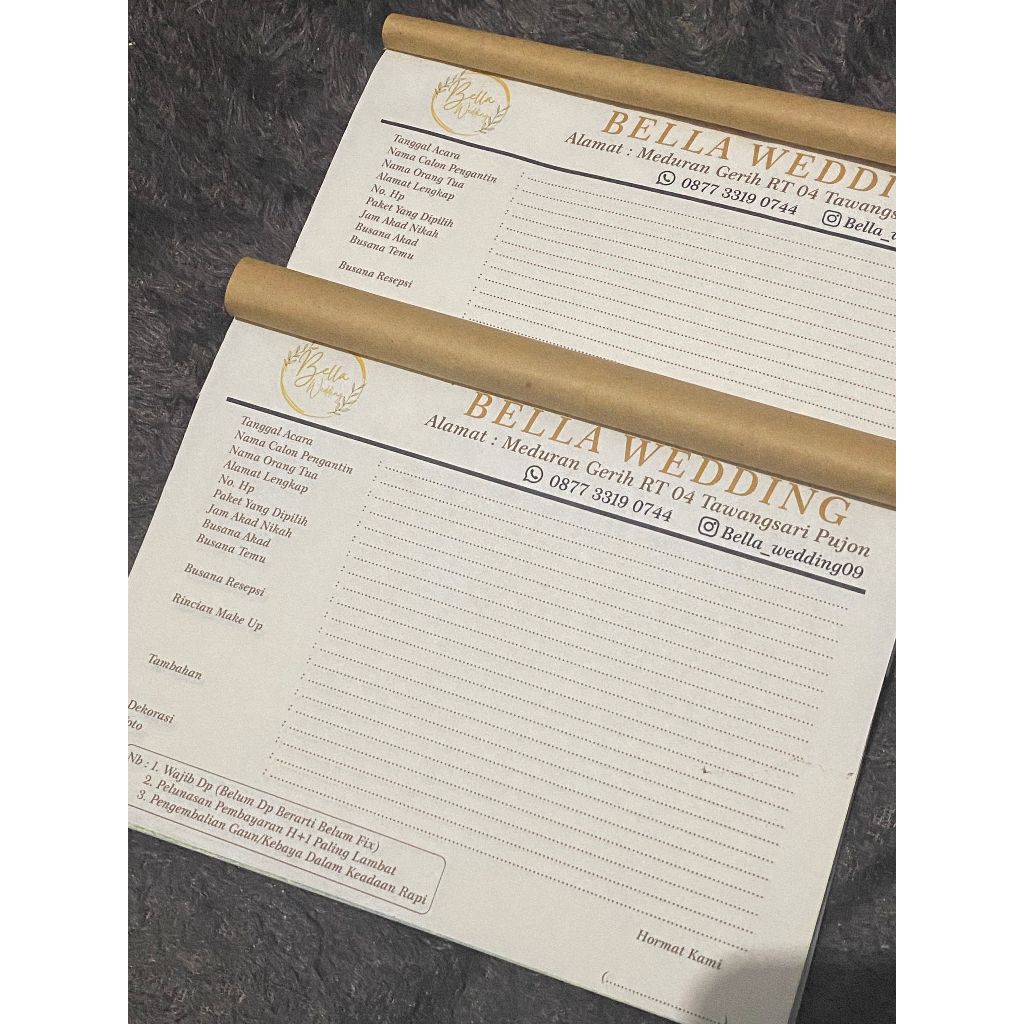 Bella
Wedding
BELLA WEDDI
Alamat : Meduran Gerih RT 04 Tawangs
0877 3319 0744 Bella_w
Tanggal Acara
Nama Calon Pengantin
Nama Orang Tua
Alamat Lengkap
No. Hp
Paket Yang Dipilih
Jam Akad Nikah
Busana Akad
Busana Temu
Busana Resepsi
Bella
Wedding
BELLA WEDDING
Alamat : Meduran Gerih RT 04 Tawangsari Pujon
0877 3319 0744 Bella_wedding09
Tanggal Acara
Nama Calon Pengantin
Nama Orang Tua
Alamat Lengkap
No. Hp
Paket Yang Dipilih
Jam Akad Nikah
Busana Akad
Busana Temu
Busana Resepsi
Rincian Make Up
Tambahan
Dekorasi
oto
Nb : 1. Wajib Dp (Belum Dp Berarti Belum Fix)
2. Pelunasan Pembayaran H+1 Paling Lambat
3. Pengembalian Gaun/Kebaya Dalam Keadaan Rapi
Hormat Kami
(....................